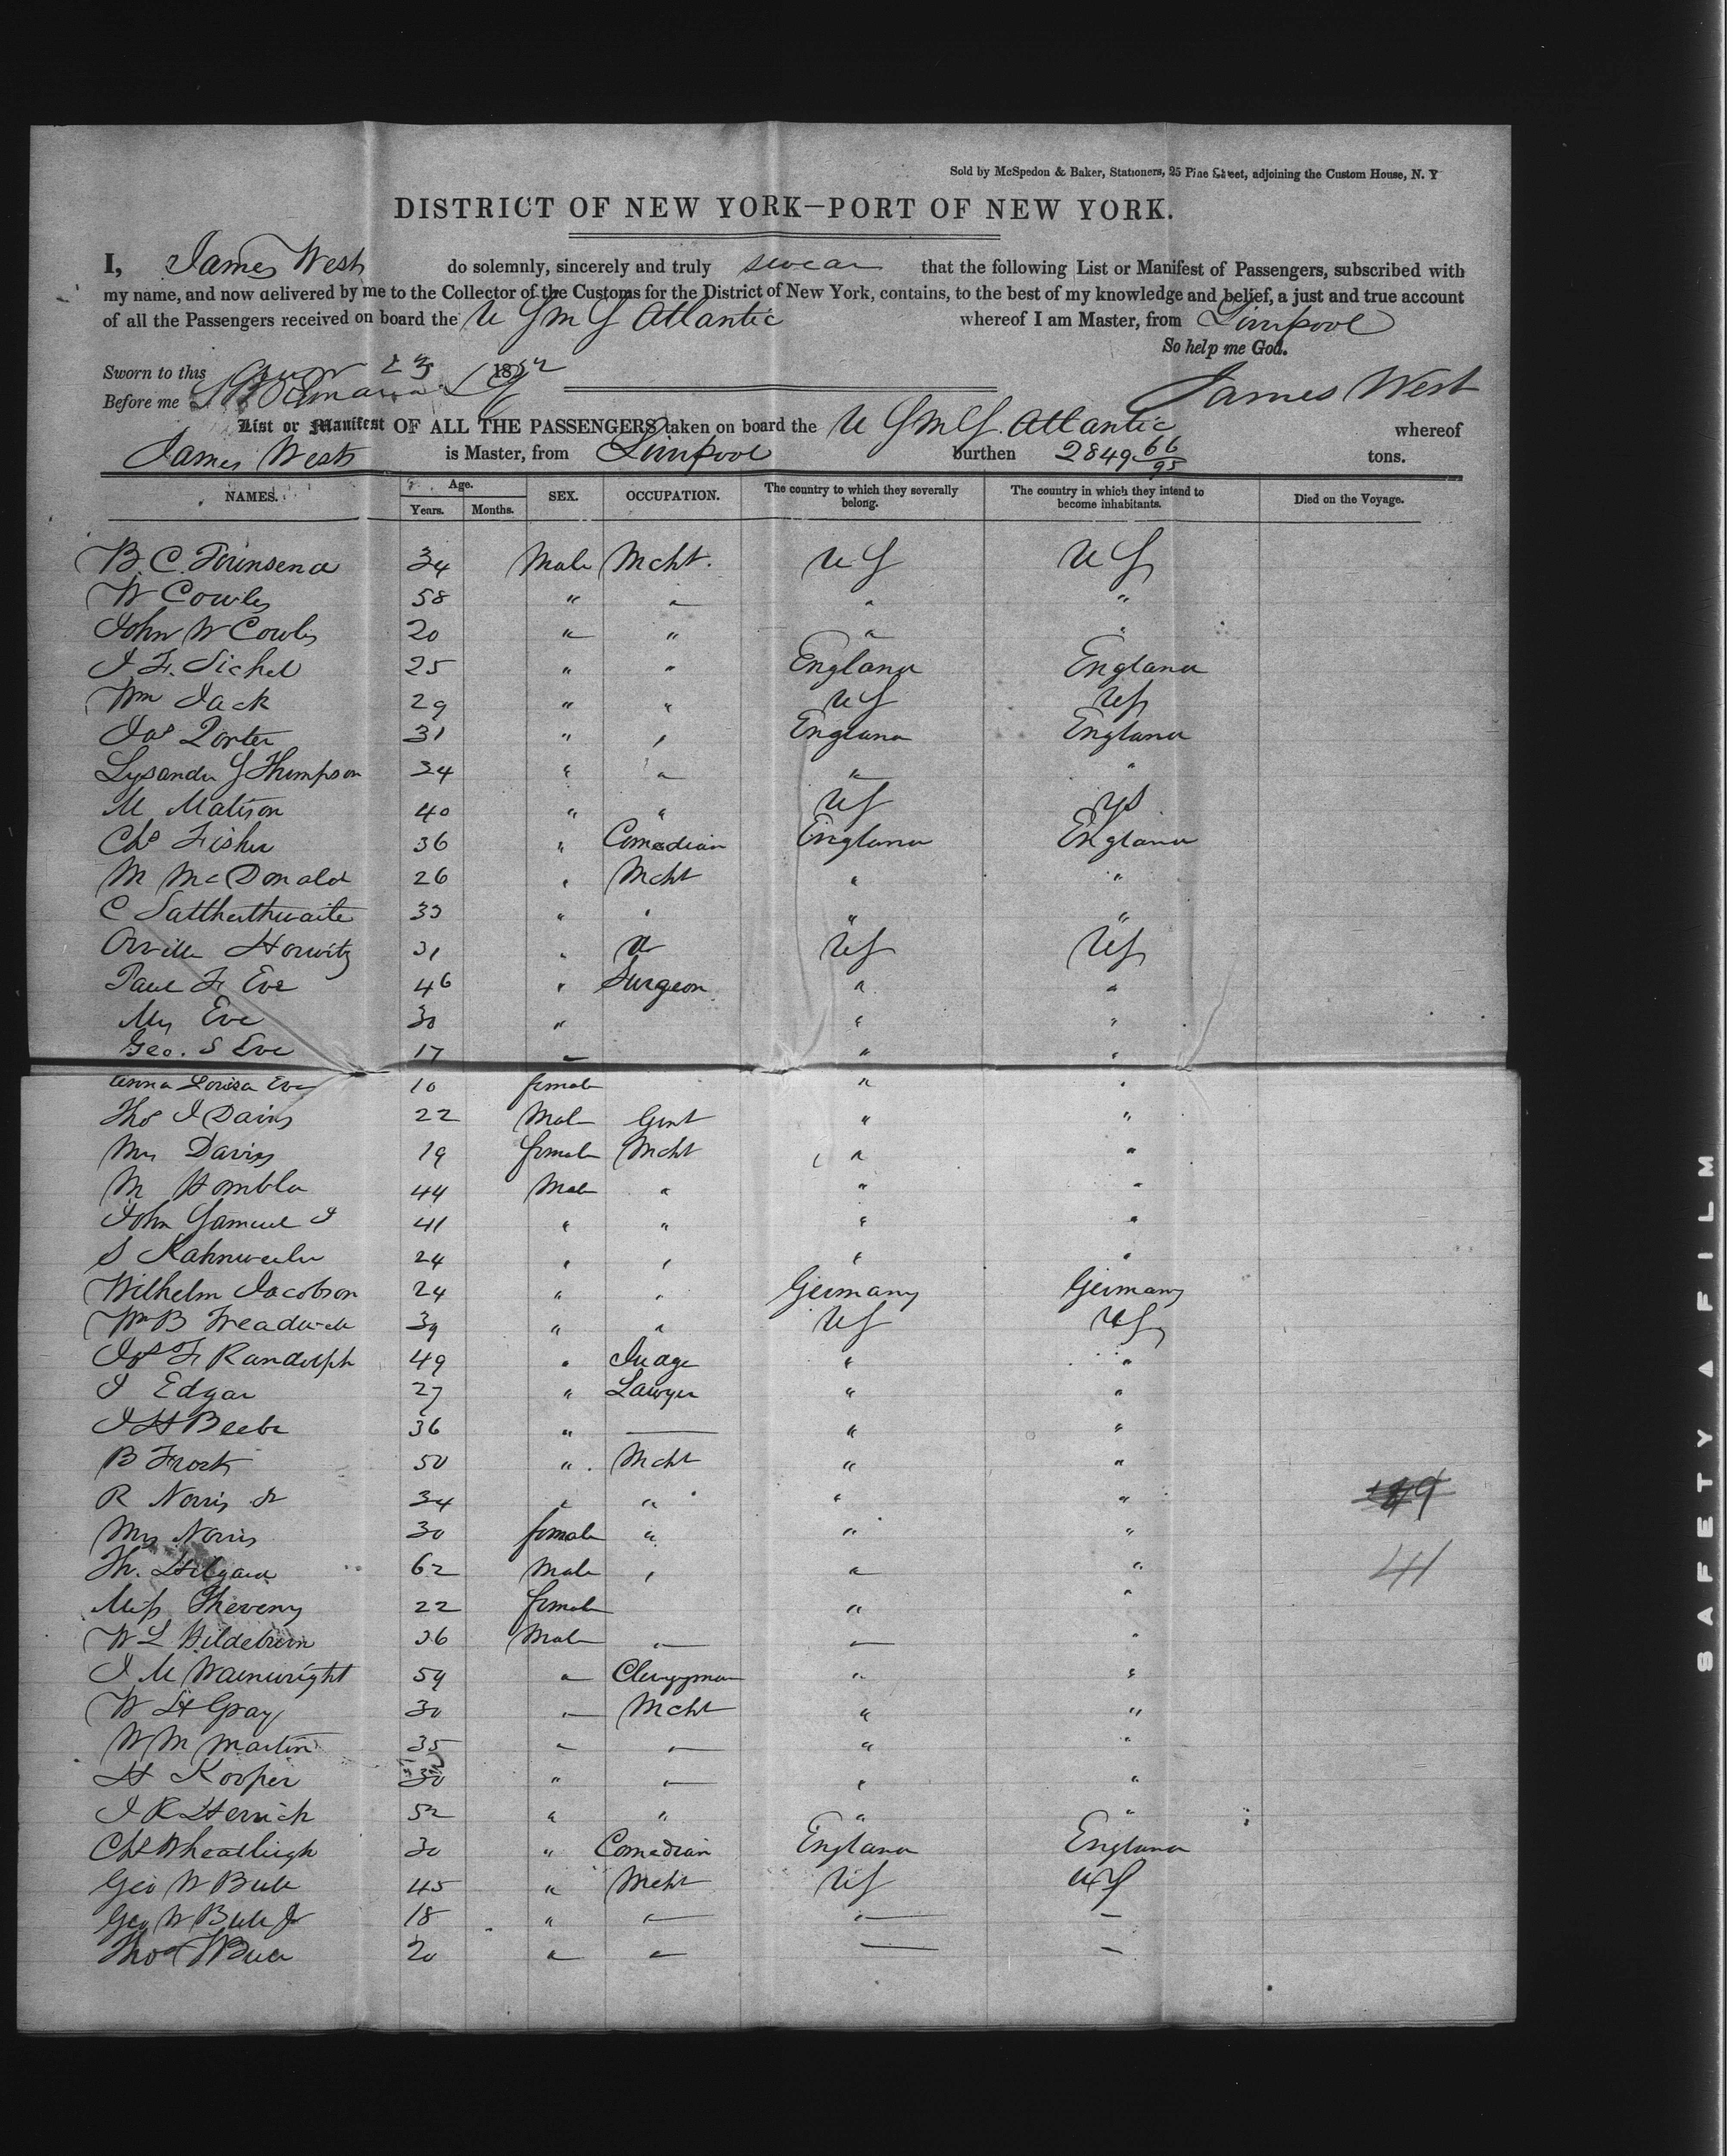 Sold by McSpedon & Baker, Stationers, 25 Pine Street, adjoining the Custom House, N. Y
DISTRICT OF NEW YORK—PORT OF NEW YORK.
I, James West do solemnly, sincerely and truly swear that the following List or Manifest of Passengers, subscribed with
my name, and now delivered by me to the Collector of the Customs for the District of New York, contains, to the best of my knowledge and belief, a just and true account
of all the Passengers received on board the U S M S Atlantic whereof I am Master, from Liverpool
So help me God.
Sworn to this 23 1852
Before me
James West
List or Manifest OF ALL THE PASSENGERS taken on board the U S M S. Atlantic whereof
James West is Master, from Liverpool burthen 2849 66/95 tons.
NAMES. Age. Years. Months. SEX. OCCUPATION. The country to which they severally belong. The country in which they intend to become inhabitants. Died on the Voyage.
B. C. Townsend 34 Male Mcht. U S U S
W Cowles 58 " " " "
John W Cowles 20 " " " "
J F. Sichel 25 " " England England
Wm Jack 29 " " U S U S
Jas Porter 31 " " England England
Lysander S Thompson 34 " " " "
M Matison 40 " " U S U S
Chs Fisher 36 " Comedian England England
M McDonald 26 " Mcht " "
C Satterthwaite 33 " " " "
Orville Horwitz 31 " " U S U S
Paul F Eve 46 " Surgeon " "
Mrs Eve 30 " " "
Geo. S Eve 17 " " "
Anna Louisa Eve 10 female " "
Thos J Davis 22 Male Gent " "
Mrs Davis 19 female Mcht " "
M Hombla 44 Male " " "
John Samuel J 41 " " " "
S Kahnweiler 24 " " " "
Wilhelm Jacobson 24 " " Germany Germany
Wm B Treadwell 39 " " U S U S
Jos F Randolph 49 " Judge " "
J Edgar 27 " Lawyer " "
J H Beebe 36 " — " "
B Frost 50 " Mcht " "
R Norris Jr 34 " " " "
Mrs Norris 30 female " " "
Th. Hilgard 62 Male " " " 41
Miss Theveny 22 female " "
W L Hildeburn 36 Male " " "
J M Wainwright 59 " Clergyman " "
W H Gray 30 " Mcht " "
W M Martin 35 " " " "
H Kooper 30 " " " "
J R Herrick 52 " " " "
Chs Wheatleigh 30 " Comedian England England
Geo W Bule 45 " Mcht U S U S
Geo W Bule Jr 18 " " " "
Thos 20 " " " "
SAFETY A FILM